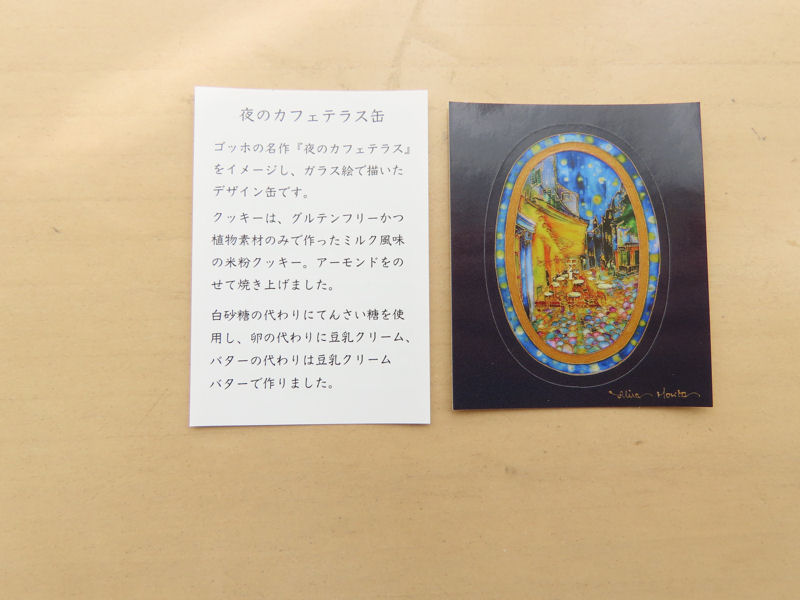 夜のカフェテラス缶
ゴッホの名作『夜のカフェテラス』
をイメージし、ガラス絵で描いた
デザイン缶です。
クッキーは、グルテンフリーかつ
植物素材のみで作ったミルク風味
の米粉クッキー。アーモンドをの
せて焼き上げました。
白砂糖の代わりにてんさい糖を使
用し、卵の代わりに豆乳クリーム、
バターの代わりは豆乳クリーム
バターで作りました。